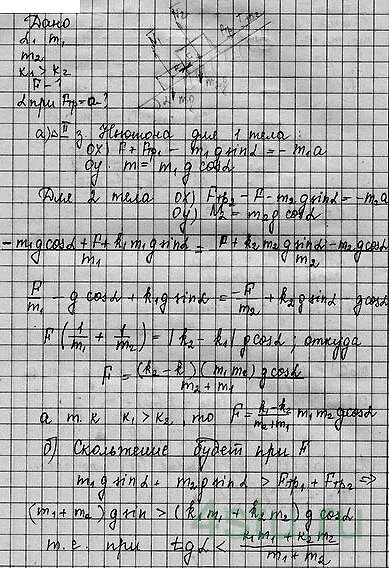 Дано
α, m₁
m₂
k₁ > k₂
F - ?
α при Aтр = a?
N₁ N₂
m₁g m₂g
а) II з. Ньютона для 1 тела:
OX) F + Fтр₁ - m₁g sinα = - m₁a
OY. m = m₁g cosα
Для 2 тела OX) Fтр₂ - F - m₂g sinα = - m₂a
OY) N₂ = m₂g cosα
(-m₁g cosα + F + k₁m₁g sinα)/m₁ = (F + k₂m₂g sinα - m₂g cosα)/m₂
F/m₁ - g cosα + k₁g sinα = -F/m₂ + k₂g sinα - g cosα
F(1/m₁ + 1/m₂) = |k₂ - k₁| g cosα; откуда
F = (k₂ - k)(m₁m₂) g cosα/(m₂ + m₁)
а т.к k₁ > k₂, то F = (k₁ - k₂)/(m₂ + m₁) m₁m₂g cosα
б) Скольжение будет при F
m₁g sinα + m₂g sinα > Fтр₁ + Fтр₂ ⇒
(m₁ + m₂)g sin > (k₁m₁ + k₂m₂) g cosα
т.е. при tgα < (k₁m₁ + k₂m₂)/(m₁ + m₂)